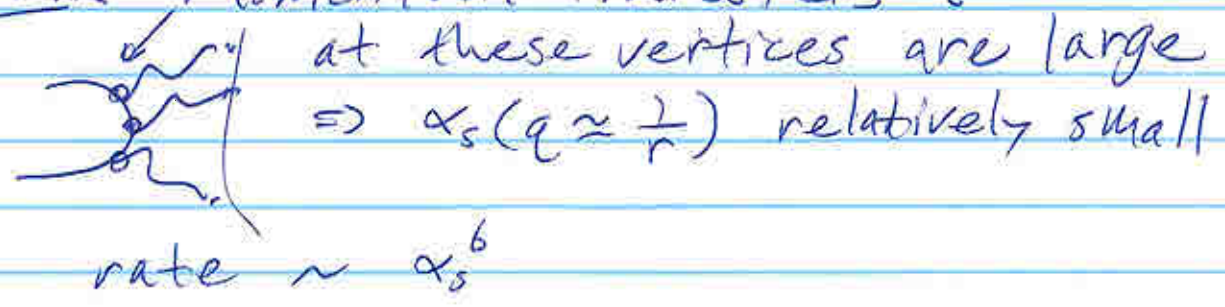 at these vertices are large
⇒ αs(q ≃ 1/r) relatively small
rate ~ αs^6